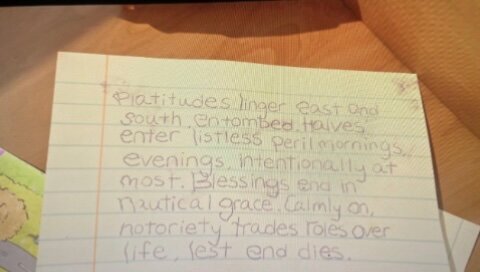 Platitudes linger east and
south, entombed. Halves
enter listless peril mornings,
evenings intentionally at
most. Blessings end in
nautical grace. Calmly on,
notoriety trades roles over
life, lest end dies.